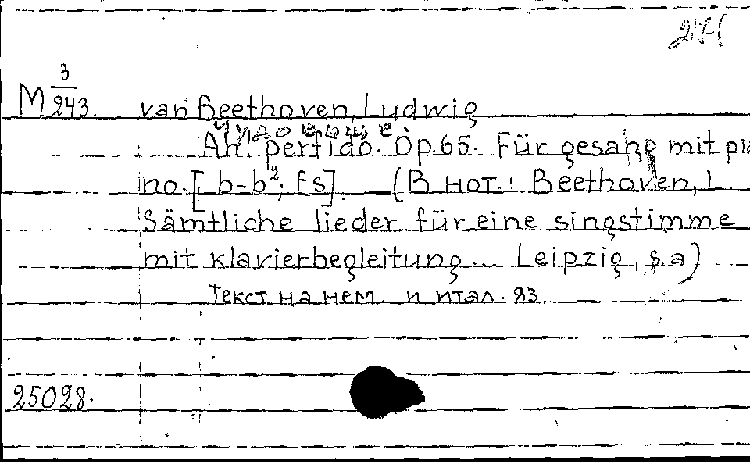 M 3/243 van Beethoven, Ludwig
Ah! perfido. Op.65. Für gesang mit pia
no. [b-b²; Es]. (В нот.: Beethoven, L
Sämtliche lieder für eine singstimme
mit klavierbegleitung... Leipzig, s.a)
Текст на нем. и итал. яз.
25028.